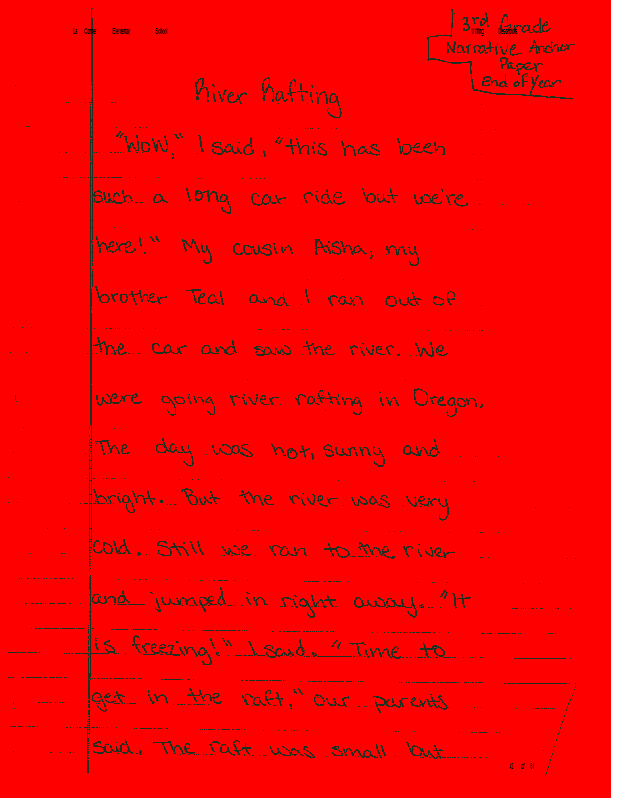 3rd Grade
Narrative Anchor
Paper
End of Year
River Rafting
"Wow," I said, "this has been
such a long car ride but we're
here!" My cousin Aisha, my
brother Teal and I ran out of
the car and saw the river. We
were going river rafting in Oregon.
The day was hot, sunny and
bright. But the river was very
cold. Still we ran to the river
and jumped in right away. "It
is freezing!" I said. "Time to
get in the raft," our parents
said. The raft was small but